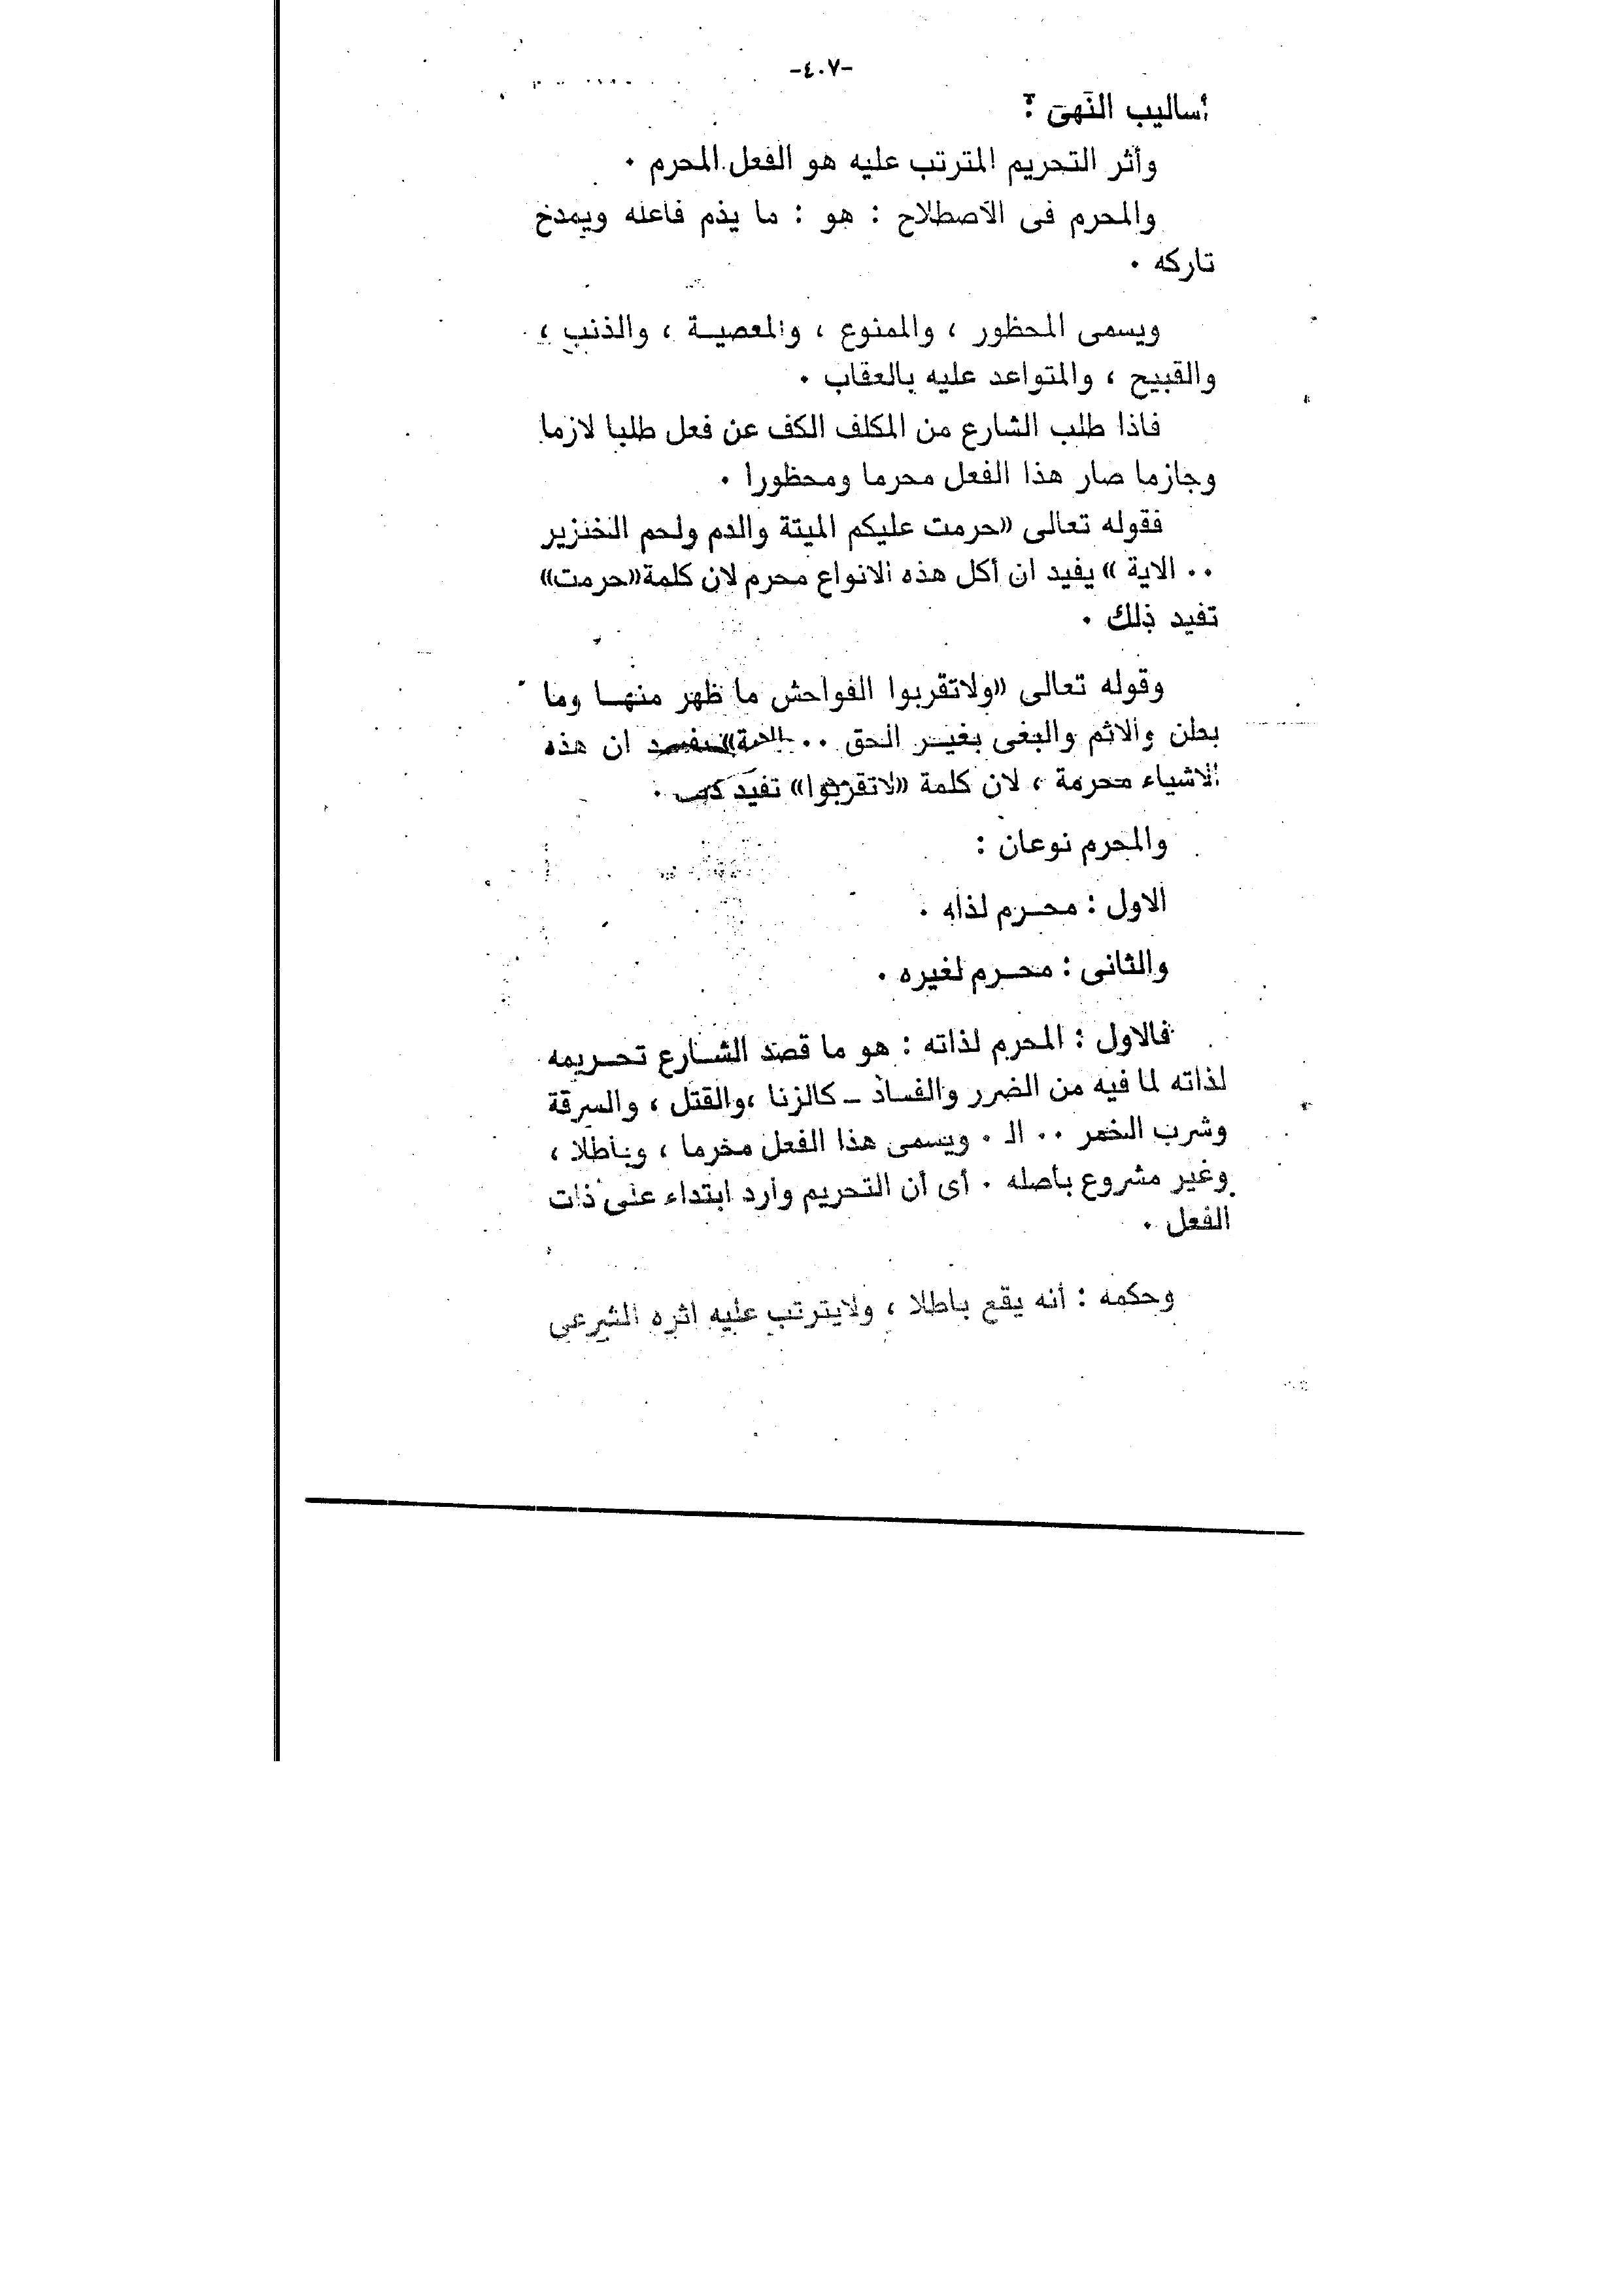 -٤٠٧-
أساليب النهى :
وأثر التحريم المترتب عليه هو الفعل المحرم ٠
والمحرم فى الاصطلاح : هو : ما يذم فاعله ويمدح
تاركه ٠
ويسمى المحظور ، والممنوع ، والمعصيــة ، والذنب ،
والقبيح ، والمتواعد عليه بالعقاب ٠
فاذا طلب الشارع من المكلف الكف عن فعل طلبا لازما
وجازما صار هذا الفعل محرما ومحظورا ٠
فقوله تعالى «حرمت عليكم الميتة والدم ولحم الخنزير
٠٠ الاية » يفيد ان أكل هذه الانواع محرم لان كلمة «حرمت»
تفيد ذلك ٠
وقوله تعالى «ولاتقربوا الفواحش ما ظهر منهــا وما
بطن والاثم والبغى بغيــر الحق ٠٠ الاية» يفيــد ان هذه
الاشياء محرمة ، لان كلمة «لاتقربوا» تفيد ٠
والمحرم نوعان :
الاول : محــرم لذاته ٠
والثانى : محــرم لغيره ٠
فالاول : المحرم لذاته : هو ما قصد الشــارع تحــريمه
لذاته لما فيه من الضرر والفساد ــ كالزنا ،والقتل ، والسرقة
وشرب الخمر ٠٠ الـ ٠ ويسمى هذا الفعل محرما ، وباطلا ،
وغير مشروع بأصله ٠ أى أن التحريم وارد ابتداء على ذات
الفعل ٠
وحكمه : أنه يقع باطلا ، ولايترتب عليه اثره الشرعى